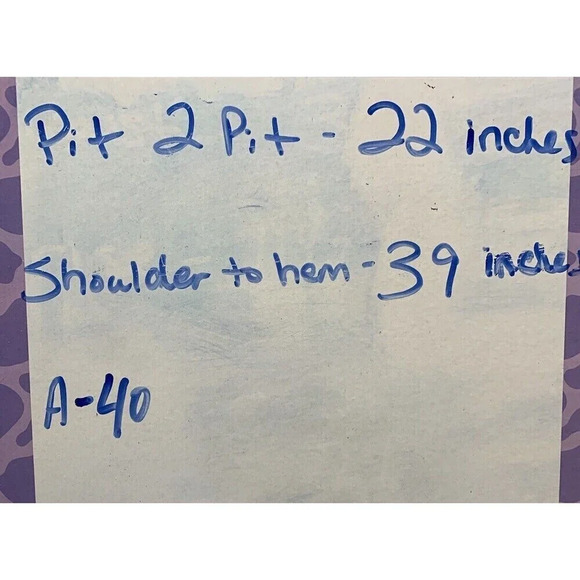 Pit 2 Pit - 22 inches
Shoulder to hem - 39 inches
A-40